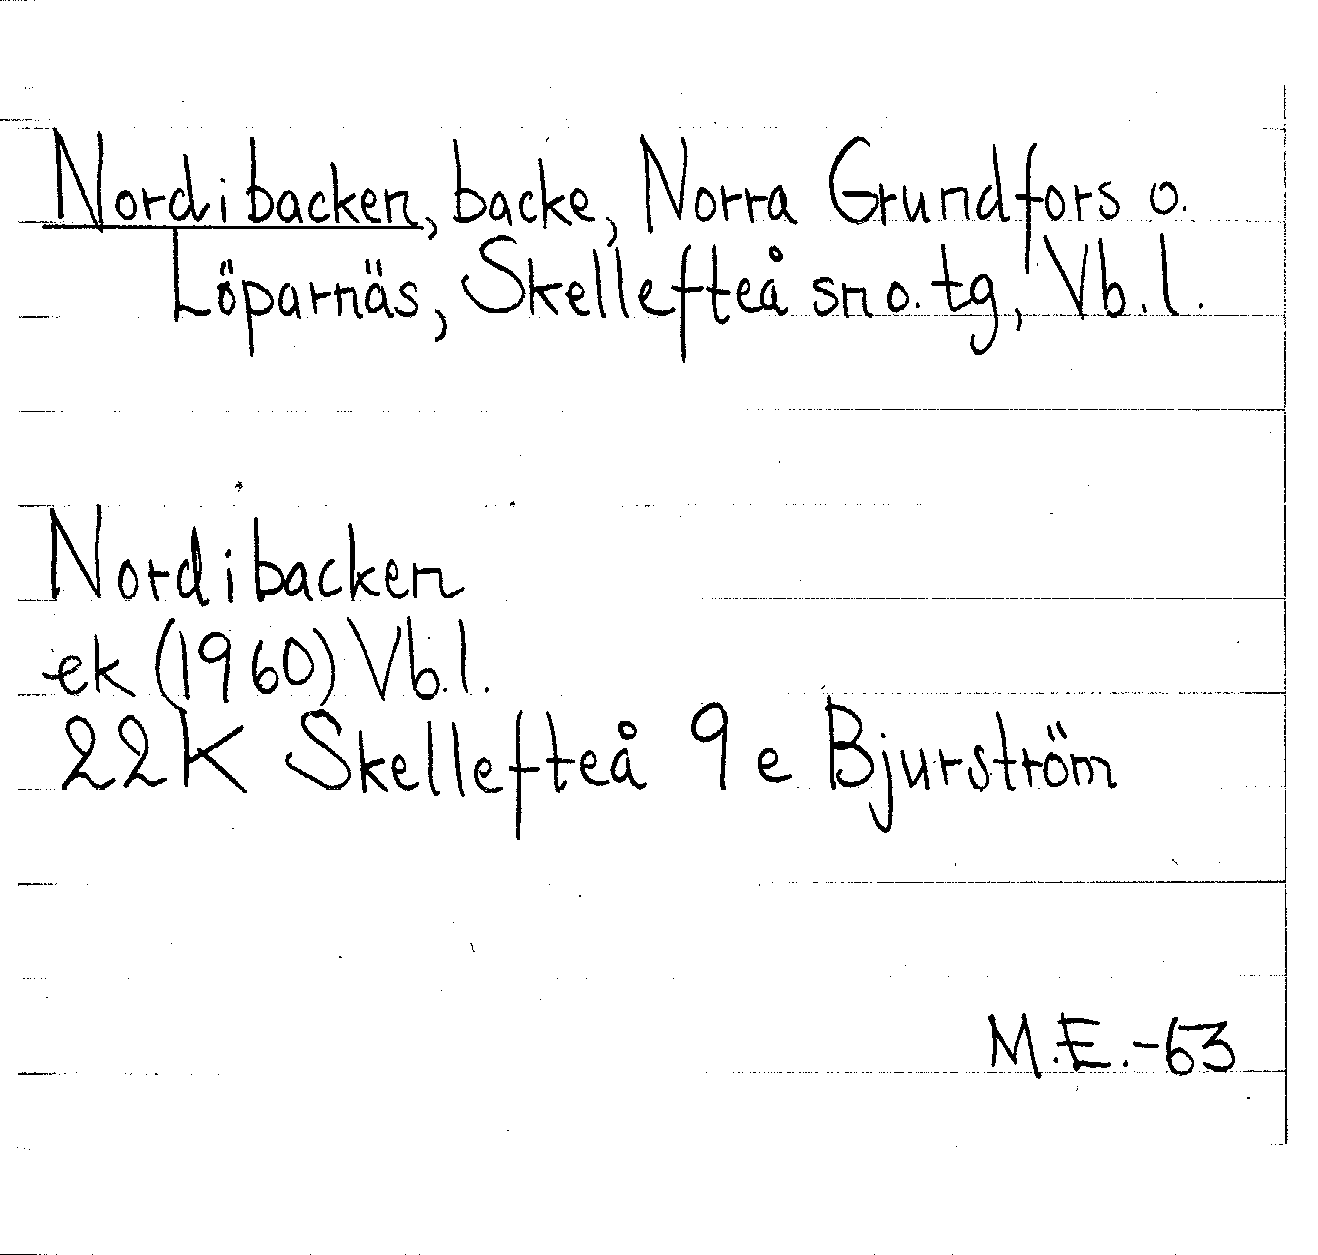 Nordibacken, backe, Norra Grundfors o.
Löparnäs, Skellefteå sn o. tg, Vb.l.
Nordibacken
ek (1960) Vb.l.
22K Skellefteå 9e Bjurström
M.E.-63